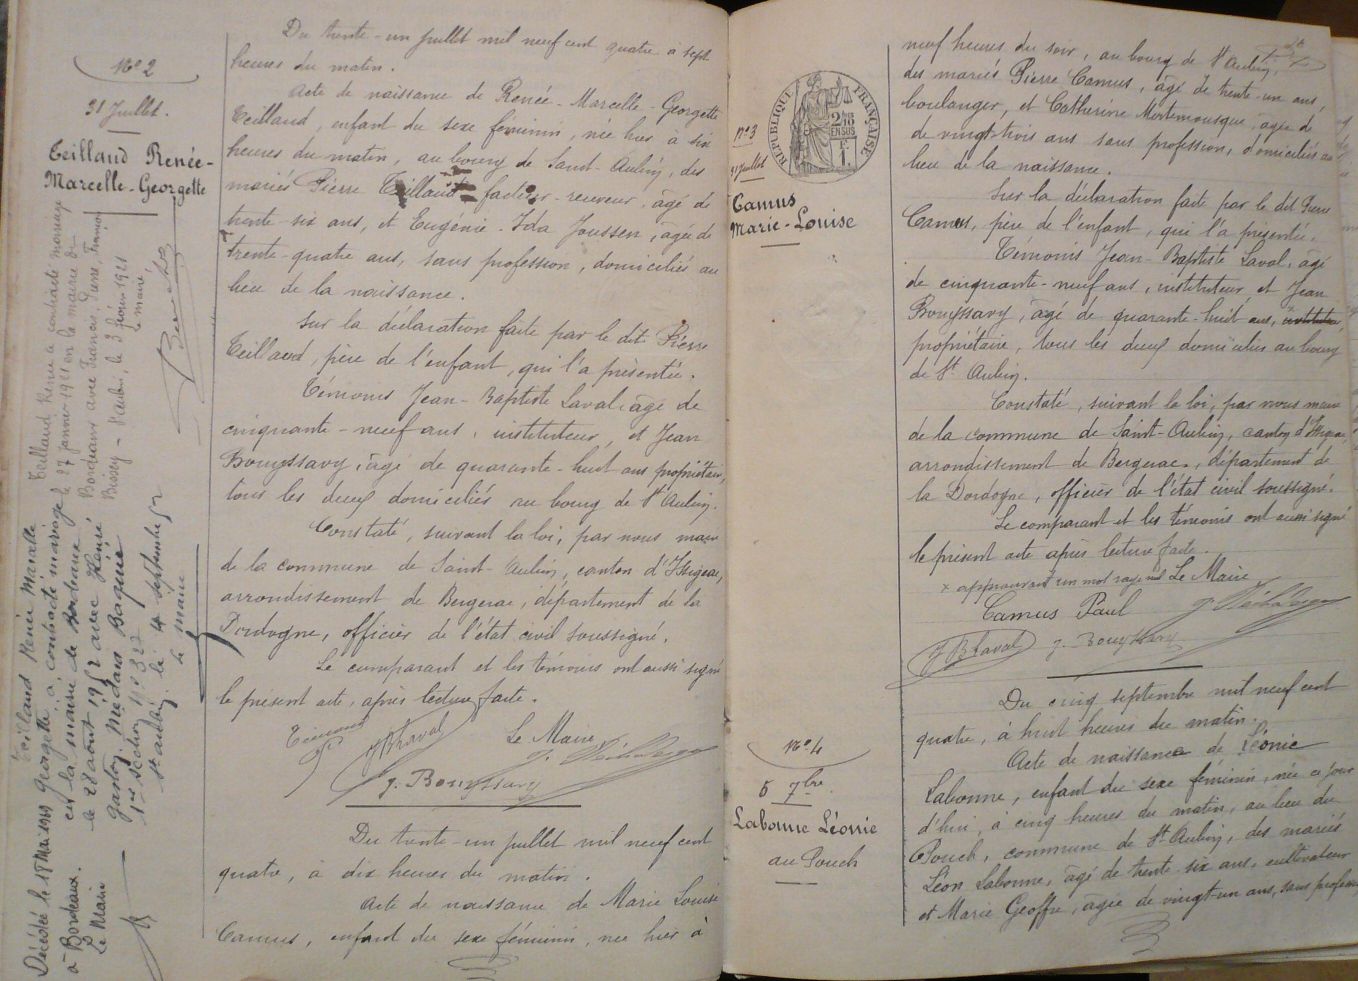 Nº 2
31 Juillet.
Teilland Renée-
Marcelle-Georgette
Teilland Renée a contracté mariage
le 27 janvier 1921 en la mairie de
Bordeaux avec Francois, Pierre, François
Bissey - St aubin, le 3 février 1921
Le maire
Teilland Renée Marcelle
Georgette a contracté mariage
en la mairie de Bordeaux
le 28 août 1952 avec Henri,
Gaston, Médard Baqué
1ère section Nº 322
St aubin le 4 septembre 52
Le maire
Décédée le 18 Mai 1969
à Bordeaux.
Le Maire
Du trente-un juillet mil neuf cent quatre à sept
heures du matin.
Acte de naissance de Renée-Marcelle-Georgette
Teilland, enfant du sexe féminin, née hier à six
heures du matin, au bourg de Saint-Aubin, des
mariés Pierre Teilland facteur-receveur, âgé de
trente-six ans, et Eugénie-Ida Joussen, agée de
trente-quatre ans, sans profession, domiciliés au
lieu de la naissance.
Sur la déclaration faite par le dit Pierre
Teilland, père de l'enfant, qui l'a présentée.
Témoins Jean-Baptiste Laval, âgé de
cinquante-neuf ans, instituteur, et Jean
Bouyssavy, âgé de quarante-huit ans propriétaire,
tous les deux domiciliés au bourg de St Aubin.
Constaté, suivant la loi, par nous maire
de la commune de Saint-Aubin, canton d'Issigeac,
arrondissement de Bergerac, département de la
Dordogne, officier de l'état civil soussigné.
Le comparant et les témoins ont aussi signé
le présent acte, après lecture faite.
JBLaval Le Maire
J. Bouyssavy
Du trente-un juillet mil neuf cent
quatre, à dix heures du matin.
Acte de naissance de Marie Louise
Camus, enfant du sexe féminin, née hier à
Nº 3
31 Juillet
RÉPUBLIQUE FRANÇAISE
2/10
EN SUS
F.
1.
Camus
Marie-Louise
neuf heures du soir, au bourg de St Aubin,
des mariés Pierre Camus, âgé de trente-un ans,
boulanger, et Catherine Montemousque, agée de
de vingt-trois ans sans profession, domiciliés au
lieu de la naissance.
Sur la déclaration faite par le dit Pierre
Camus, père de l'enfant, qui l'a présentée.
Témoins Jean-Baptiste Laval, âgé
de cinquante-neuf ans, instituteur et Jean
Bouyssavy, âgé de quarante-huit ans, instituteur,
propriétaire, tous les deux domiciliés au bourg
de St Aubin.
Constaté, suivant la loi, par nous maire
de la commune de Saint-Aubin, canton d'Issigeac,
arrondissement de Bergerac, département de
la Dordogne, officier de l'état civil soussigné.
Le comparant et les témoins ont aussi signé
le présent acte après lecture faite.
x approuvant un mot rayé nul Le Maire
Camus Paul
JBLaval J. Bouyssavy
Nº 4
5 7bre
Labonne Léonie
au Pouch
Du cinq septembre mil neuf cent
quatre, à huit heures du matin.
Acte de naissance de Léonie
Labonne, enfant du sexe féminin, née ce jour
d'hui, à cinq heures du matin, au lieu du
Pouch, commune de St Aubin, des mariés
Léon Labonne, âgé de trente-six ans, cultivateur
et Marie Geoffre, agée de vingt-un ans, sans profession